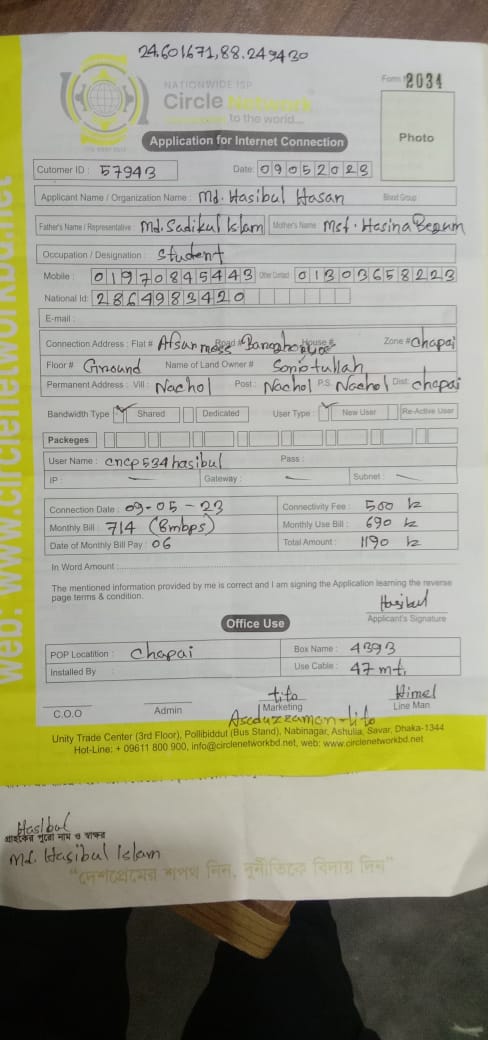 24.601671,88.249430
NATIONWIDE ISP
Circle Network
to the world...
Form # 2034
Application for Internet Connection
Photo
Cutomer ID : 57943 Date: 09052023
Applicant Name / Organization Name : Md. Hasibul Hasan Blood Group
Father's Name / Representative : Md. Sadikul Islam Mother's Name : Mst. Hasina Begum
Occupation / Designation : Student
Mobile : 01970845443 Other Contact : 01303658223
National Id: 2864983420
E-mail :
Connection Address : Flat # Afsun mess Road # House # Zone # Chapai
Floor # Ground Name of Land Owner # Sonatullah
Permanent Address : Vill : Nachol Post : Nachol P.S. Nachol Dist. Chapai
Bandwidth Type Shared Dedicated User Type : New User Re-Active User
Packeges
User Name : cncp534hasibul Pass :
IP : Gateway : Subnet :
Connection Date : 09-05-23 Connectivity Fee : 500 tk
Monthly Bill : 714 (8mbps) Monthly Use Bill : 690 tk
Date of Monthly Bill Pay : 06 Total Amount : 1190 tk
In Word Amount :
The mentioned information provided by me is correct and I am signing the Application learning the reverse
page terms & condition.
Hasibul
Applicant's Signature
Office Use
POP Locatition : Chapai Box Name : 4393
Installed By Use Cable : 47 mt.
tito Himel
C.O.O Admin Marketing Line Man
Aseduzzaman-tito
Unity Trade Center (3rd Floor), Pollibiddut (Bus Stand), Nabinagar, Ashulia, Savar, Dhaka-1344
Hot-Line: + 09611 800 900, info@circlenetworkbd.net, web: www.circlenetworkbd.net
web: www.circlenetworkbd.net
Hasibul
গ্রাহকের পুরো নাম ও স্বাক্ষর
Md. Hasibul Islam
"দেশপ্রেমের শপথ নিন, দুর্নীতিকে বিদায় দিন"